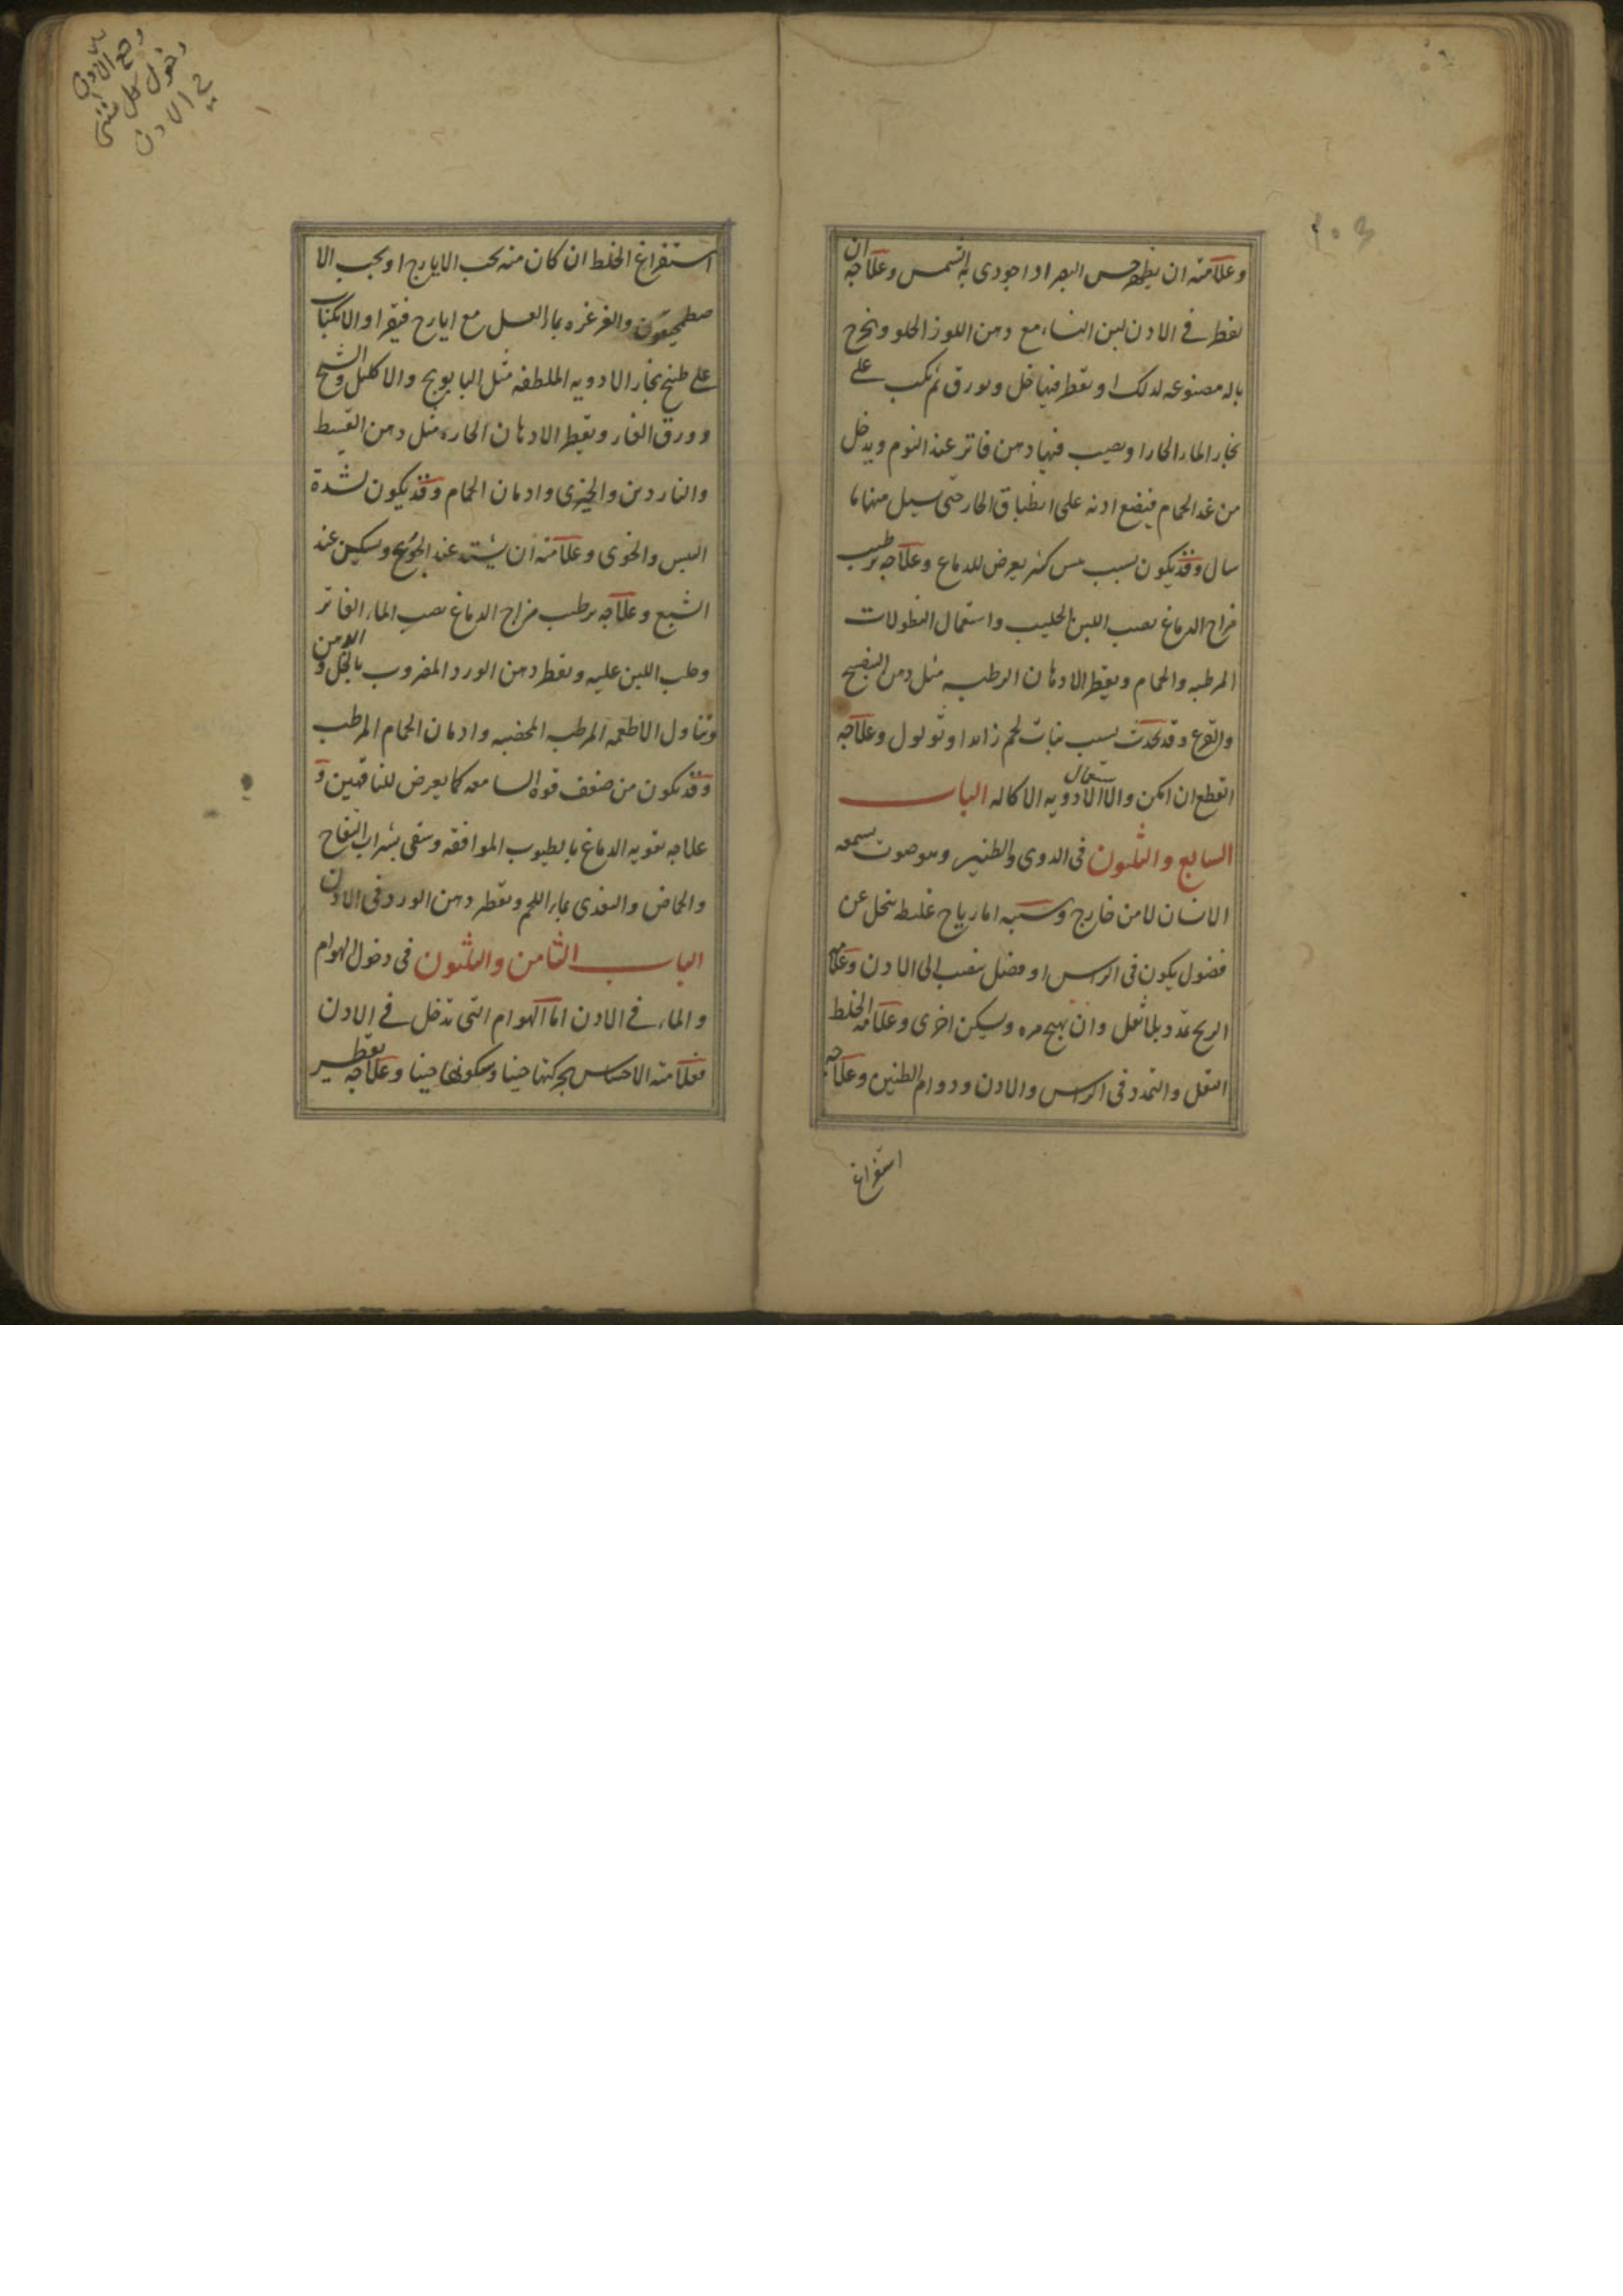 وعلامته ان يظهر حس البصر اذا حوذى به الشمس وعلاجه ان
يقطر في الاذن لبن النساء مع دهن اللوز الحلو ويخرج
باله مصنوعه لذلك او يقطر فيها خل وبورق ثم يكب على
بخار الماء الحار او يصب فيها دهن فاتر عند النوم ويدخل
من غد الحمام فيضع اذنه على انطباق الحار حتى يسيل منها ما
سال وقد يكون بسبب يبس كثير يعرض للدماغ وعلاجه ترطيب
مزاج الدماغ بصب اللبن الحليب واستعمال النطولات
المرطبه والحمام ويقطر الادهان الرطبه مثل دهن البنفسج
والقرع وقد يحدث بسبب نبات لحم زائد او ثولول وعلاجه
القطع ان امكن والا استعمال الادويه الاكاله الباب
السابع والثلثون في الدوى والطنين وهو صوت يسمعه
الانسان لا من خارج وسببه اما رياح غليظه تنحل عن
فضول يكون في الراس او فضل ينصب الى الاذن وعلامه
الريح تمدد بلا ثقل وان يهيج مره ويسكن اخرى وعلامه الخلط
الثقل والتمدد في الراس والاذن ودوام الطنين وعلاجه
استفراغ
وجع الاذن
دخول كل شئ
في الاذن
استفراغ الخلط ان كان منه بحب الايارج او بحب الا
صطمحيقون والغرغره بماء العسل مع ايارج فيقرا والانكباب
على طبخ بخار الادويه الملطفه مثل البابونج والاكليل والشيح
وورق الغار ويقطر الادهان الحاره مثل دهن القسط
والناردين والخيرى وادمان الحمام وقد يكون لشدة
اليبس والخوى وعلامته ان يشتد عند الجوع ويسكن عند
الشبع وعلاجه ترطيب مزاج الدماغ بصب الماء الفاتر
وحلب اللبن عليه ويقطر دهن الورد المضروب بالخل والدهن
وتناول الاطعمه المرطبه المخصبه وادمان الحمام المرطب
وقد يكون من ضعف قوه السامعه كما يعرض للناقهين و
علاجه تقويه الدماغ بالطيوب الموافقه وسقى شراب التفاح
والحماض والتغذى بماء اللحم ويقطر دهن الورد في الاذن
الباب الثامن والثلثون في دخول الهوام
والماء في الاذن اما الهوام التي تدخل في الاذن
فعلامته الاحساس بحركتها حينا وسكونها حينا وعلاجه تقطير